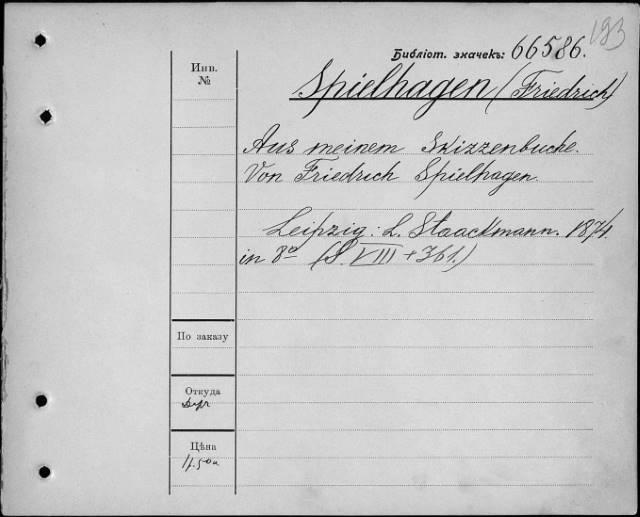 193
Библіот. значекъ: 66586.
Инв.
№
Spielhagen (Friedrich)
Aus meinem Skizzenbuche.
Von Friedrich Spielhagen.
Leipzig: L. Staackmann. 1874.
in 8º (S. VIII + 361.)
По заказу
Откуда
Цѣна